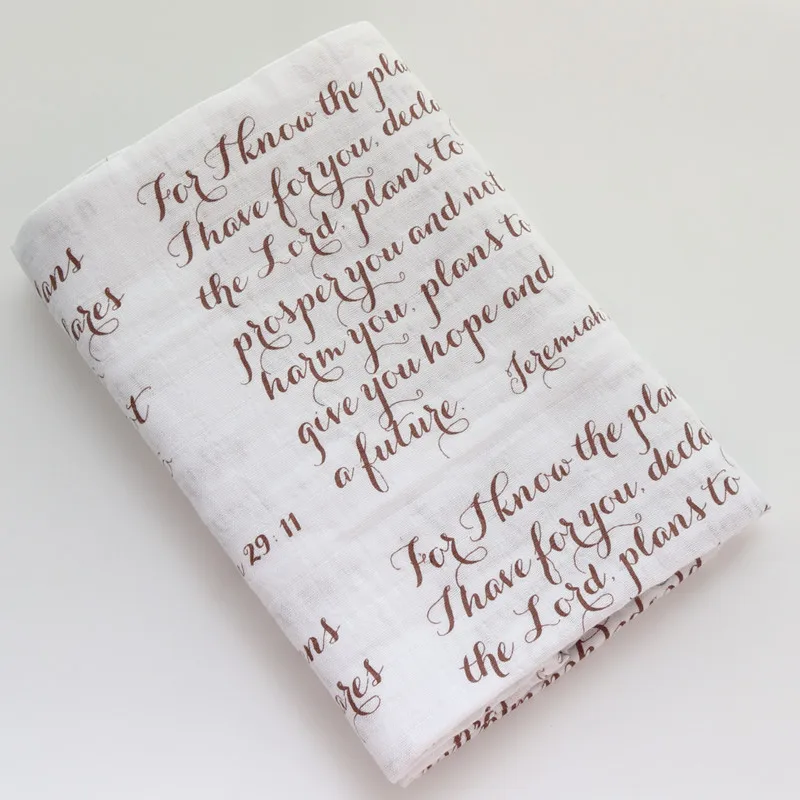 For I know the pla
I have for you, decla
the Lord, plans to
prosper you and not
harm you, plans to
give you hope and
a future. Jeremiah
lans
lares
t
29:11
For I know the plan
I have for you, decla
the Lord, plans to
ns
ares